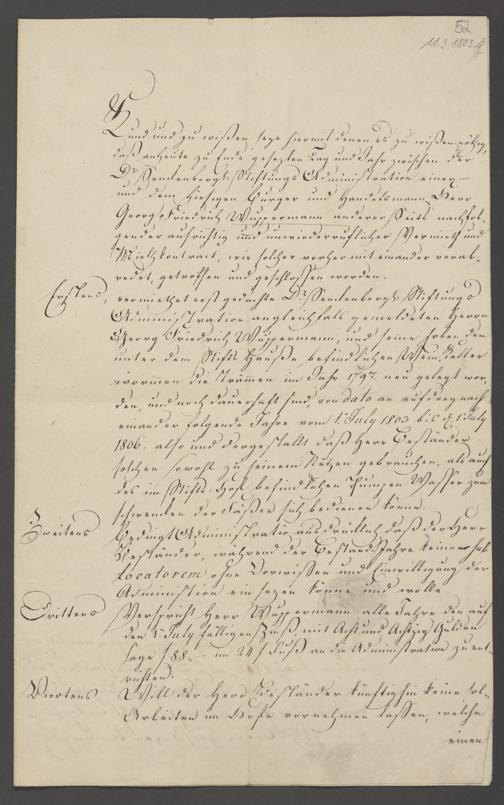 52
11.3.1803
Kund und zu wißen seye hiermit denen es zu wißen nöthig,
daß anheute zu Ende gesezten Tag und Jahr zwischen der
Dr. Senckenbergl. Stiftungs Administration einer-
und dem hiesigen Burger und Handelsmann Herr
Georg Friedrich Wuppermann anderer Seits nachfol-
gender aufrichtig und unwiederruflicher Vermieth und
Miethkontrakt, wie solcher vorher mit einander verab-
redet, getroffen und geschlossen worden.
Erstens, vermiethet erst gedachte Dr. Senckenbergl. Stiftungs
Administration an gleichfalls gemeldeten Herrn
Georg Friedrich Wuppermann, und seine Erben den
unter dem Stifts Hauße befindlichen Wein Keller
worinnen die Trämen im Jahr 1797. neu gelegt wor-
den, und noch dauerhaft sind, von dato an auf drey nach
einander folgende Jahre vom 1. July 1803 bis d. 1. July
1806. also und dergestallt daß Herr Beständer
solchen sowohl zu seinem Nutzen gebrauchen, als auch
des im Stifts Hof befindlichen Pumpen Wasser zum
schwenken der Fässer sich bedienen könne.
Zweitens Bedingt Administratio ausdrücklich daß der Herr
Beständer, während der Bestandsjahre keinen sub
locatorem ohne Vorwissen und Einwilligung der
Administration ein sezen könne und wolle.
Drittens Verspricht Herr Wuppermann alle Jahre den auf
den 1. July fälligen Zinß, mit Acht und Achtzig Gulden
sage f 88.- im 24 f Fuß an die Administration zu ent-
richten.
Viertens Will der Herr Beständer künftighin keine sol-
Arbeiten im Hofe vornehmen lassen, welche
einen